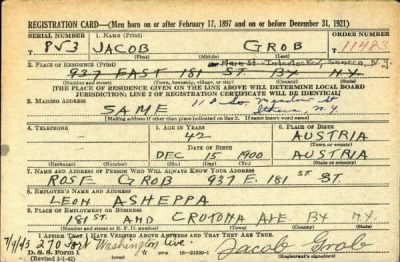 REGISTRATION CARD—(Men born on or after February 17, 1897 and on or before December 31, 1921)
SERIAL NUMBER 1. NAME (Print) ORDER NUMBER
853 JACOB GROB 11483
(First) (Middle) (Last)
2. PLACE OF RESIDENCE (Print) Main St- Interlocken, Seneca, N.Y.
937 EAST 181 ST. BX N.Y.
(Number and street) (Town, township, village, or city) (County) (State)
[THE PLACE OF RESIDENCE GIVEN ON THE LINE ABOVE WILL DETERMINE LOCAL BOARD
JURISDICTION; LINE 2 OF REGISTRATION CERTIFICATE WILL BE IDENTICAL]
3. MAILING ADDRESS
SAME So. Meadow St
Ithaca, N.Y.
[Mailing address if other than place indicated on line 2. If same insert word same]
4. TELEPHONE 5. AGE IN YEARS 6. PLACE OF BIRTH
42 AUSTRIA
DATE OF BIRTH (Town or county)
DEC 15 1900 AUSTRIA
(Exchange) (Number) (Mo.) (Day) (Yr.) (State or country)
7. NAME AND ADDRESS OF PERSON WHO WILL ALWAYS KNOW YOUR ADDRESS
ROSE GROB 937 E. 181 ST ST.
8. EMPLOYER'S NAME AND ADDRESS
LEON ASHEPPA
9. PLACE OF EMPLOYMENT OR BUSINESS
181 ST AND CROTONA AVE. BX N.Y.
(Number and street or R. F. D. number) (Town) (County) (State)
I AFFIRM THAT I HAVE VERIFIED ABOVE ANSWERS AND THAT THEY ARE TRUE.
270 Fort Washington Ave.
D. S. S. Form 1
(Revised 1-1-42) Jacob Grob
(Registrant's signature)